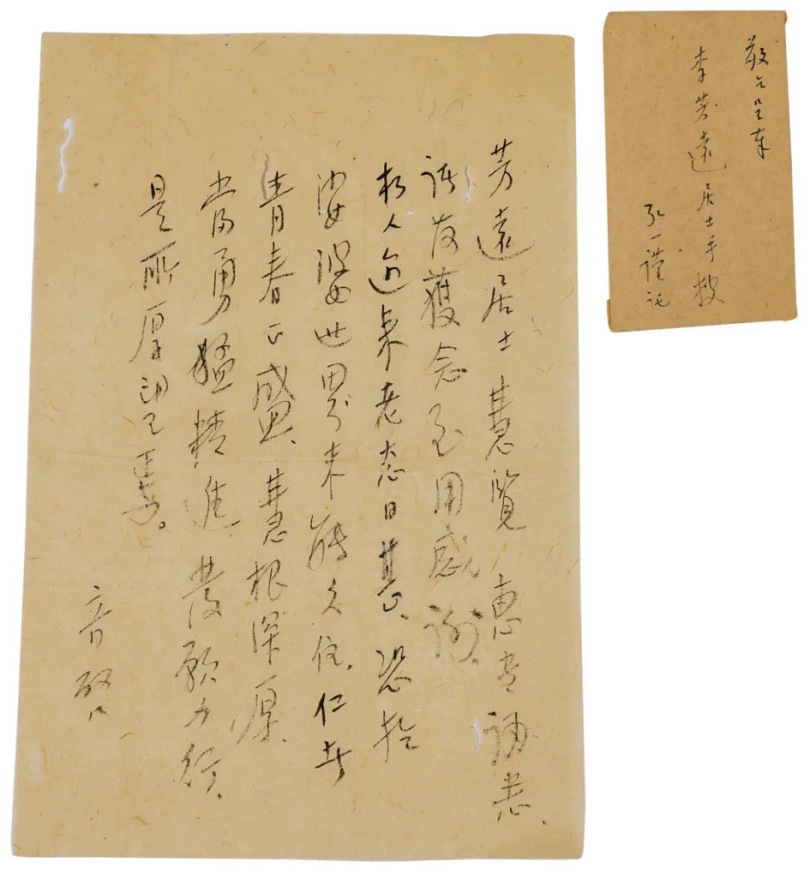 芳遠居士慧覽惠書誦悉、
諸友獲念至用感謝、
朽人近來老态日甚、恐於
娑婆世界未能久住、仁者
青春正盛、慧根深厚、
當勇猛精進發願力行、
是所厚望焉。
音啓
敬乞呈奉
李芳遠居士手披
弘一謹託